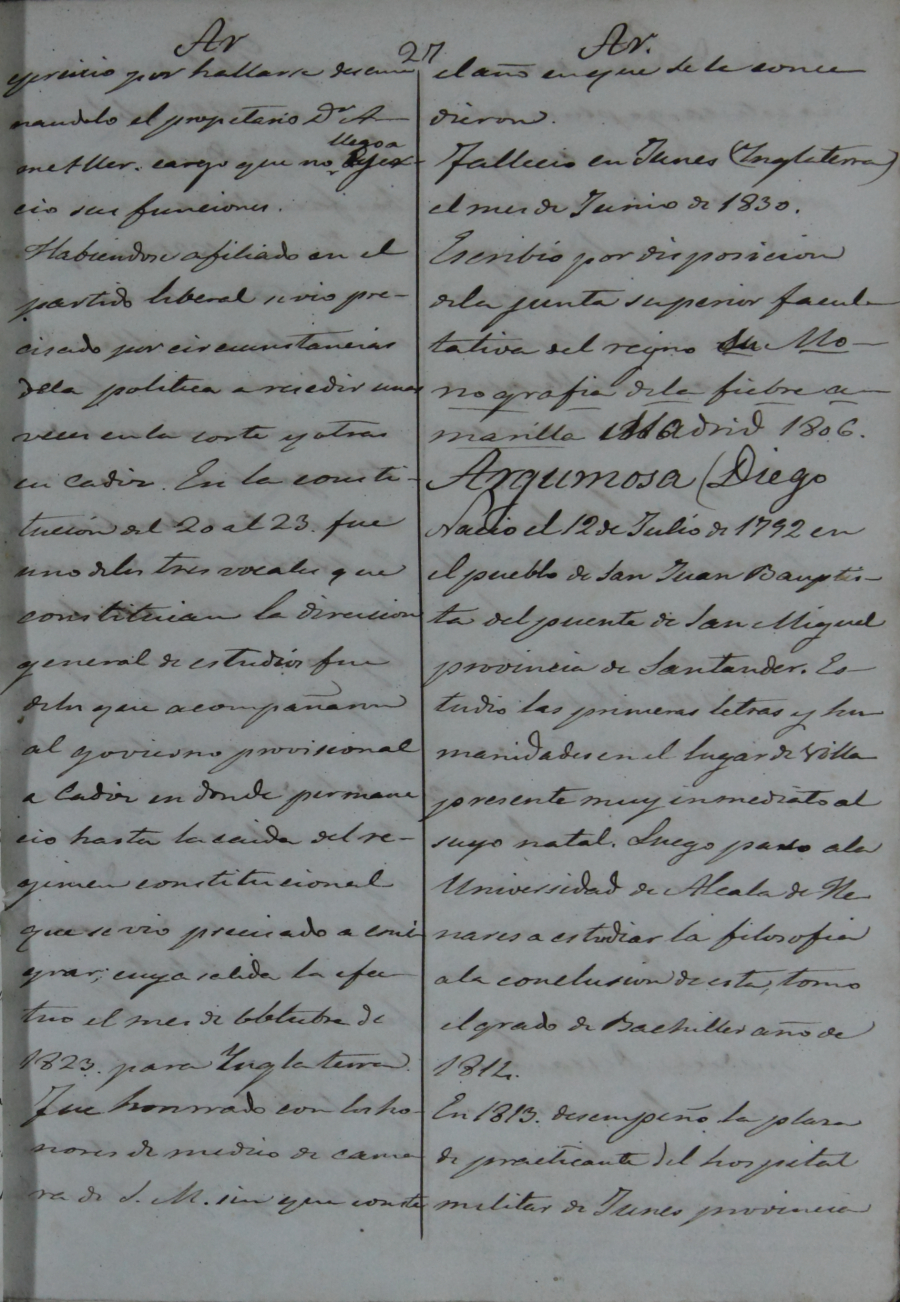 Ar
27
Ar.
ejercicio por hallarse desem
nandolo el propetario Dr A
metller. cargo que no llego a ejer
cio sus funciones.
Habiendose afiliado en el
partido liberal se vio pre-
cisado por circunstancias
dela politica a resedir unas
veces en la corte y otras
en Cadiz. En la consti-
tución del 20 al 23. fue
uno delos tres vocales que
constituian la direccion
general de estudios fue
delos que acompañaron
al govierno provisional
a Cadiz en donde permane
cio hasta la caida del re-
gimen constitucional
que se vio precisado a emi
grar; cuya salida la efec
tuo el mes de Octubre de
1823. para Inglaterra.
Fue honrrado con los ho-
nores de medico de cama
ra de S. M. sin que conste
el año en que se le conce
dieron.
Fallecio en Tunes (Inglaterra)
el mes de Junio de 1830.
Escribio por disposicion
dela junta superior facul
tativa del reyno su Mo-
nografia dela fiebre a-
marilla Madrid 1806.
Argumosa (Diego
Nacio el 12 de Julio de 1792 en
el pueblo de San Juan Bauptis-
ta del puente de San Miguel
provincia de Santander. Es
tudio las primeras letras y hu
manidades en el lugar de Villa
presente muy inmediato al
suyo natal. Luego paso ala
Universidad de Alcala de He
nares a estudiar la filosofia
ala conclusion de esta, tomo
el grado de Bachiller año de
1812.
En 1813. desempeño la plaza
de practicante del hospital
militar de Tunes provincia